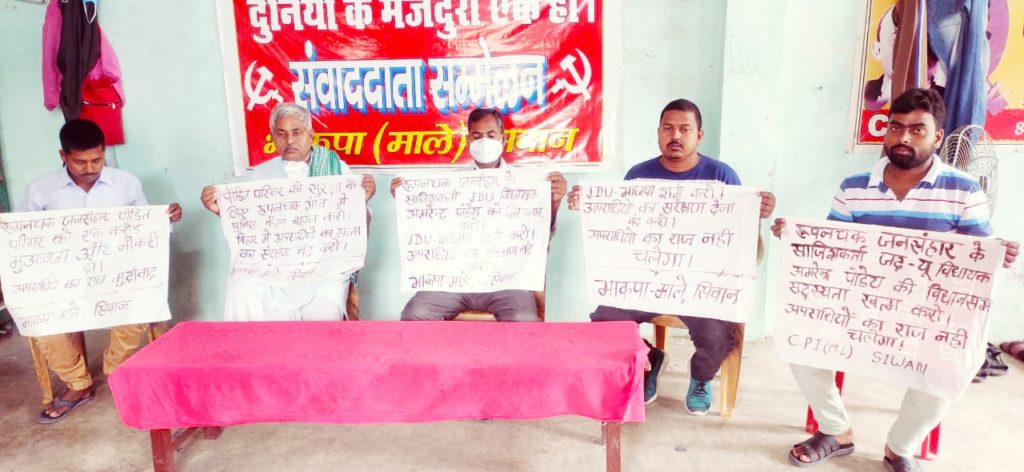 दुनिया के मजदूरों एक हो।
संवाददाता सम्मेलन
भाकपा (माले) सिवान
C
8
रूपनचक जनसंहार पीड़ित
परिवार को एक करोड़
मुआवजा और नौकरी
दो।
अपराधियों का राज मुर्दाबाद
भाकपा-माले सिवान
पीड़ित परिवार की सुरक्षा के
लिए रूपनचक गांव में
पुलिस कैम्प बहाल करो।
बिहार में अपराधियों का सत्ता
का संरक्षण बंद करो।
भाकपा माले सिवान
रूपनचक जनसंहार के
साजिशकर्ता JDU विधायक
अमरेन्द्र पांडेय को गिरफ्तार
करो।
JDU-भाजपा शर्म करो।
अपराधियों का संरक्षण बंद
करो।
भाकपा-माले, सिवान
JDU-भाजपा शर्म करो।
अपराधियों का संरक्षण देना
बंद करो।
अपराधियों का राज नहीं
चलेगा।
भाकपा-माले, सिवान
रूपनचक जनसंहार के
साजिशकर्ता जद-यू विधायक
अमरेन्द्र पांडेय की विधानसभा
सदस्यता खत्म करो।
अपराधियों का राज नहीं
चलेगा।
C.P.I(ML) SIWAN